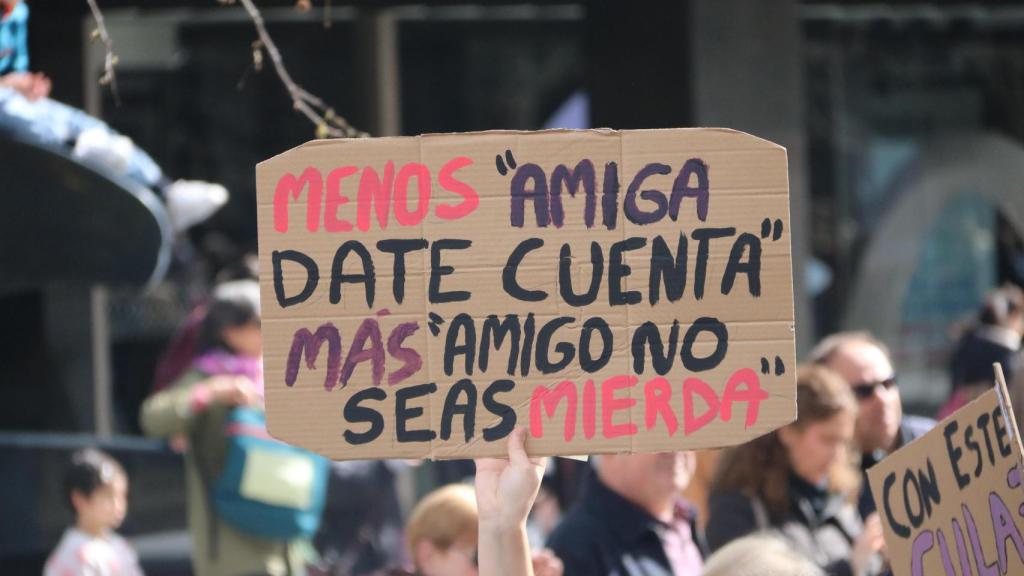 MENOS "AMIGA
DATE CUENTA"
MÁS "AMIGO NO
SEAS MIERDA"
CON ESTE